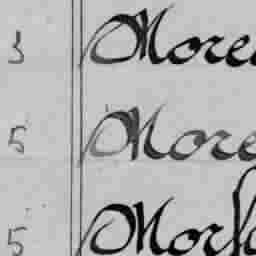 3 More
5 More
5 Mors